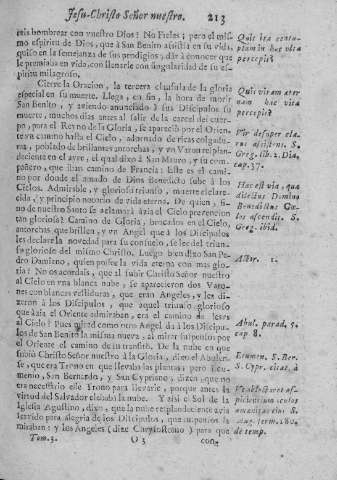 Jesu-Christo Señor nuestro. 213
eis hombrear con nuestro Dios? No Fieles; pero el mismo
espiritu de Dios, que à San Benito assistia en su vida,
quiso en la semejanza de sus prodigios, dàr à conocer que
le premiava en vida, con llenarle con singularidad de su espiritu
milagroso.
Cierre la Oracion, la tercera clausula de la gloria
especial en su muerte. Llega, en fin, la hora de morir
San Benito, y aviendo anunciado à sus Discipulos su
muerte, muchos dias antes al salir de la carcel del cuerpo,
para el Reyno de la Gloria, se apareciò por el Oriente
vn camino hasta el Cielo, adornado de ricas colgaduras,
poblado de brillantes antorchas, y vn Varon resplandeciente
en el ayre, el qual dixo à San Mauro, y su compañero,
que iban camino de Francia: Este es el camino
por donde el amado de Dios Benedicto sube à los
Cielos. Admirable, y glorioso triunfo, muerte esclarecida,
y principio notorio de vida eterna. De quien, sino
de nuestro Santo se aclamarà àzia el Cielo prevencion
tan gloriosa? Camino de Gloria, brocados en el Cielo,
antorchas que brillen, y vn Angel que à los Discipulos
les declare la novedad para su consuelo, se lee del triunfo
glorioso del mismo Christo. Luego bien dixo San Pedro
Damiano, quien posee la vida eterna con mas gloria?
No os acordais, que al subir Christo Señor nuestro
al Cielo en vna blanca nube, se aparecieron dos Varones
con blancas vestiduras, que eran Angeles, y les dizeron
à los Discipulos, que aquel triunfo glorioso
que àzia el Oriente admiraban, era el camino de llegar
al Cielo? Pues mirad como otro Angel dà à los Discipulos
de San Benito la misma nueva, al mirar suspensos por
el Oriente el camino de su transito. De la nube en que
subiò Christo Señor nuestro à la Gloria, dizen
que era Trono en que llevaba las plantas; pero Ecumenio,
San Bernardo, y San Cypriano, dizen que no
era necessario esse Trono para llevarle, porque antes la
virtud del Salvador elebaba la nube. Y assi el Sol de la
Iglesia Agustino, dixo, que la nube resplandeciente avia
servido para alegria de los Discipulos, que suspensos la
miraban: y los Angeles (dize Chrysostomo) para que
Tom. 3. O 3 con-
Quis ita centuplum
in hac vita
percepit?
Qui viram æternam
hac vita
percepit?
Vir desuper clarus
assistens. S.
Greg. lib. 2. Dia.
cap. 37.
Hac est via, qua
dilectus Domino
Benedictus Coelos
ascendit. S.
Greg. ibid.
Actor. 1.
Abul. parad. 5.
cap. 8.
Ecumen. S. Ber.
S. Cypr. citat. à
S. Aug. serm. 180.
de temp.